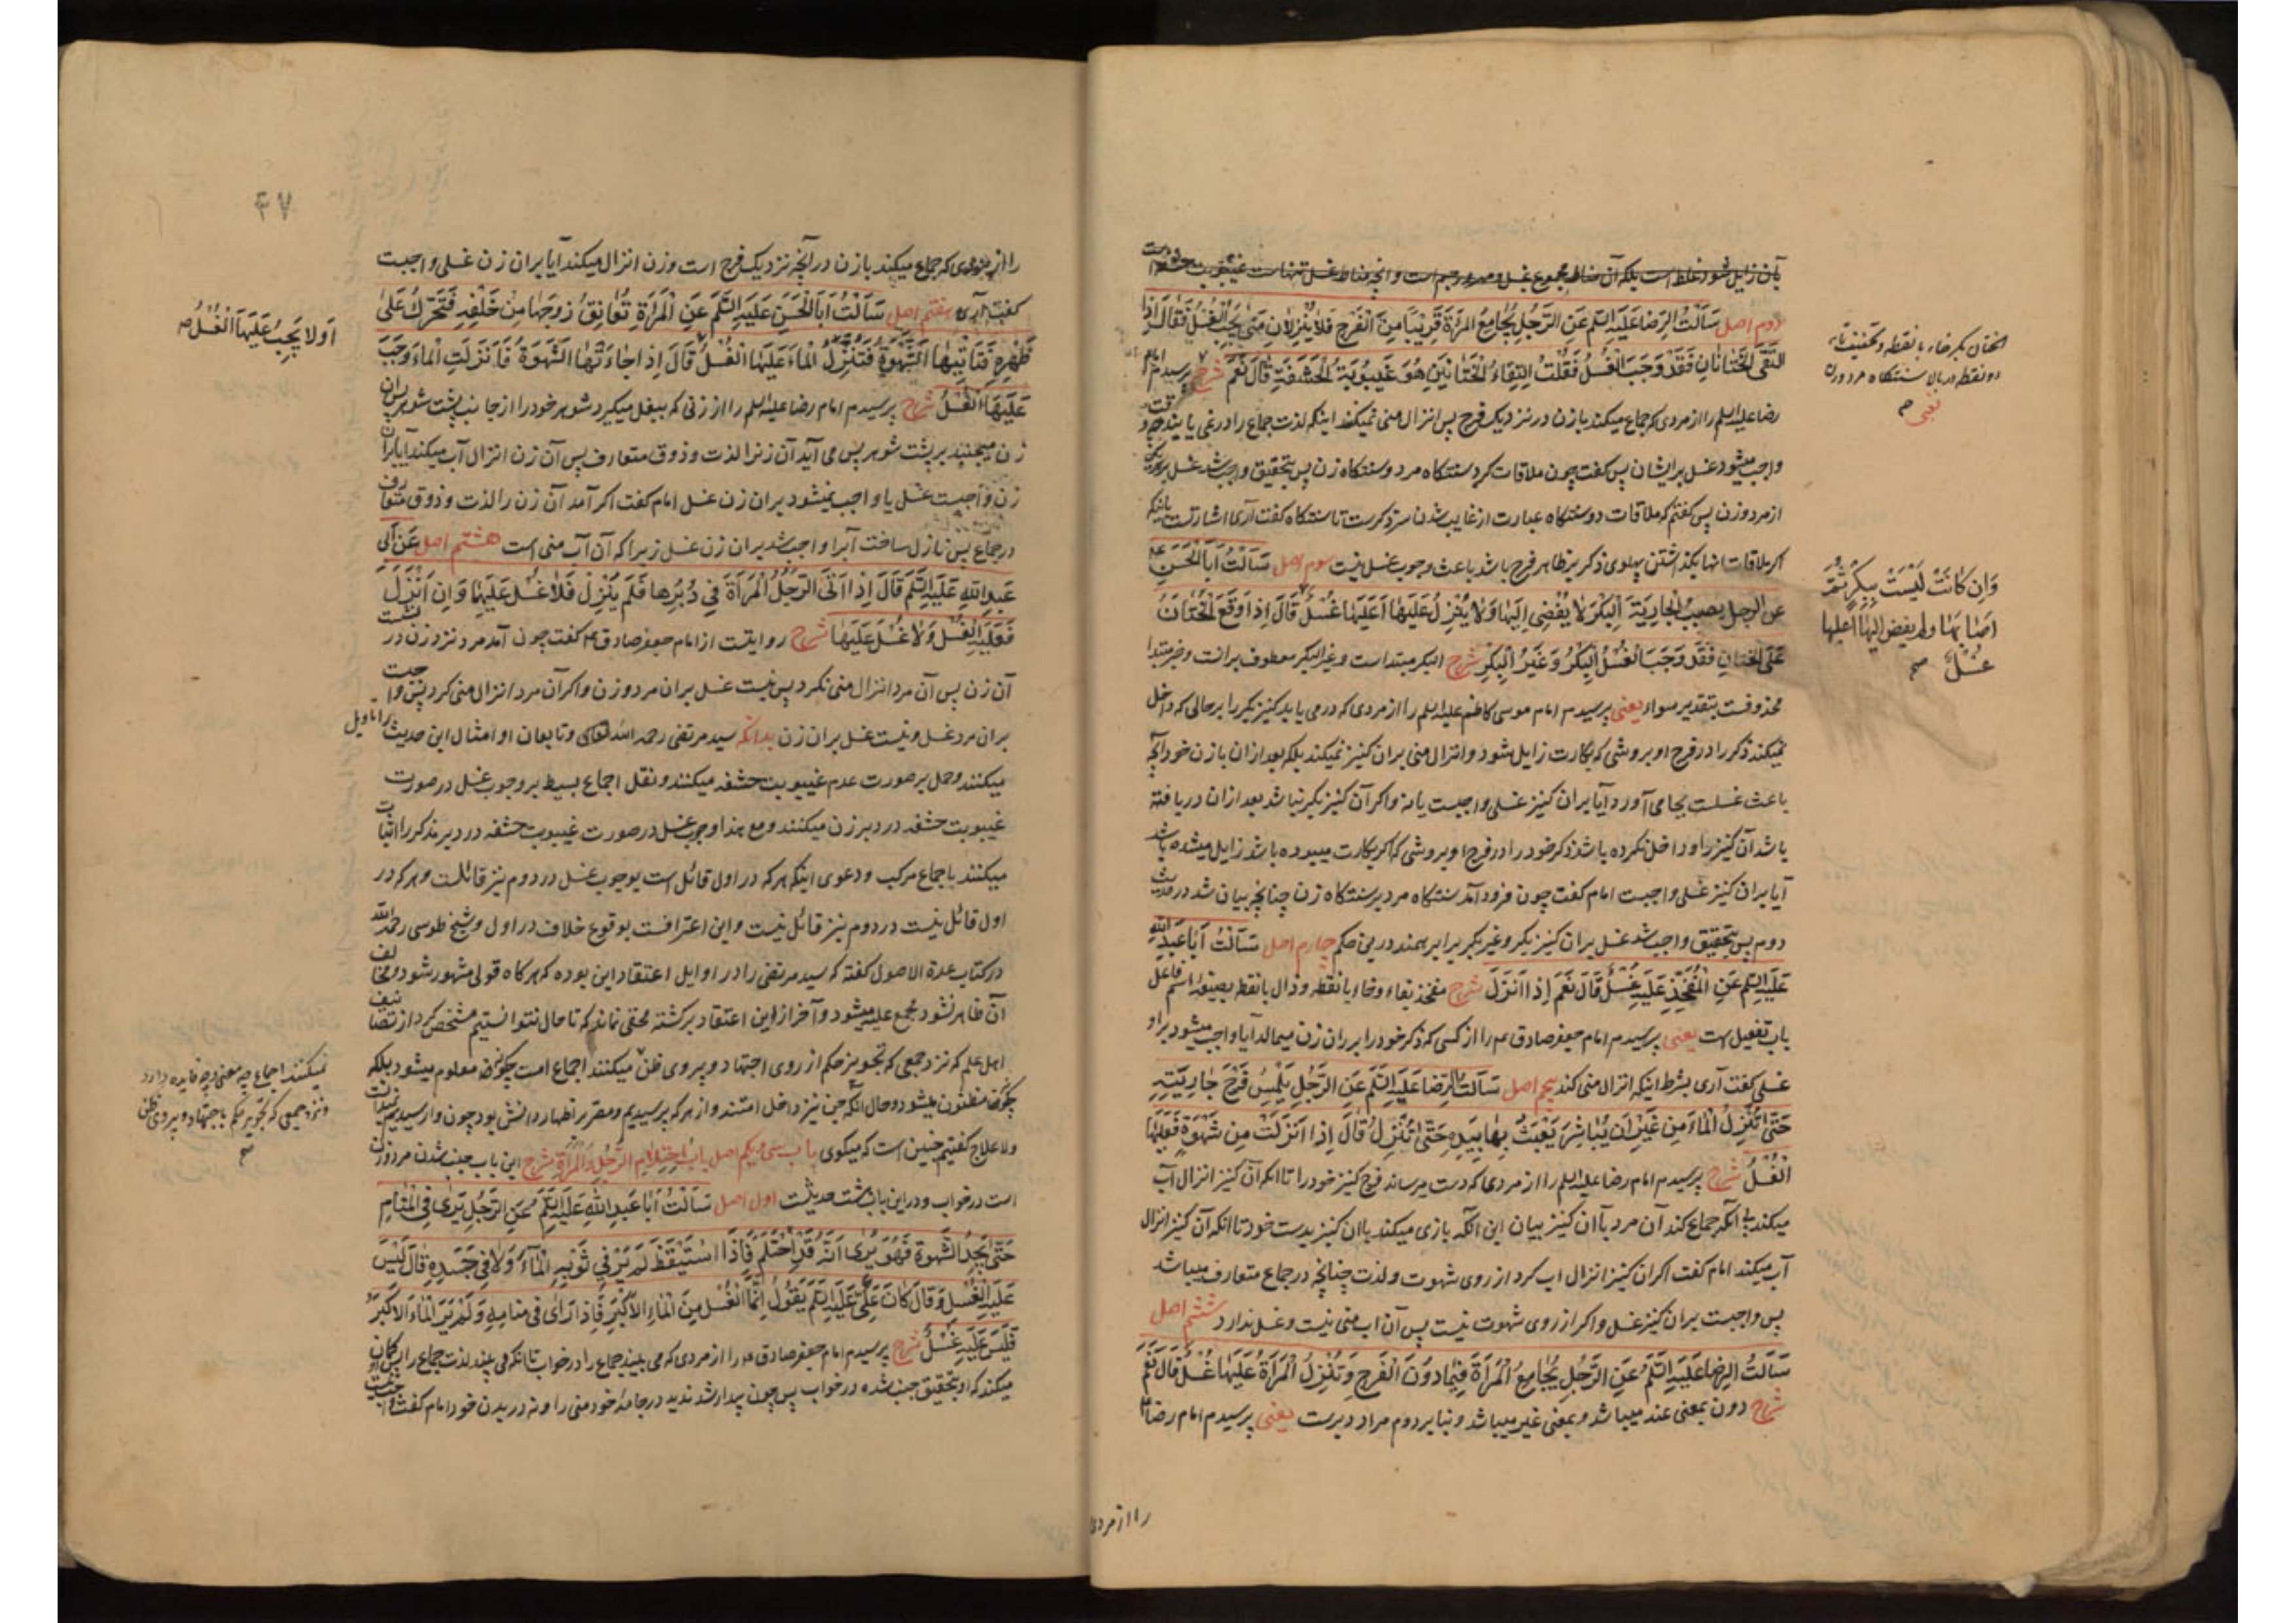 بآن زایل شود غلط است بلکه آن مناط مجموع غسل و مهر و رجم است و آنچه مناط غسل تنهاست غیبوبت حشفه است
دوم اصل سَأَلْتُ الرِّضَا عَلَیْهِ السَّلَم عَنِ الرَّجُلِ یُجَامِعُ الْمَرْأَةَ قَرِیبًا مِنَ الْفَرْجِ فَلَا یُنْزِلَانِ مَتَی یَجِبُ الْغُسْلُ فَقَالَ إِذَا
الْتَقَی الْخِتَانَانِ فَقَدْ وَجَبَ الْغُسْلُ فَقُلْتُ الْتِقَاءُ الْخِتَانَیْنِ هُوَ غَیْبُوبَةُ الْحَشَفَةِ قَالَ نَعَمْ شرح پرسیدم امام
رضا علیه السلم را از مردی که جماع میکند با زن در نزدیک فرج پس انزال منی نمیکنند اینکه لذت جماع را درغی یابند چه وقت
واجب میشود غسل بر ایشان پس گفت چون ملاقات کرد سنتگاه مرد و سنتگاه زن پس بتحقیق واجب شد غسل بر هر یک
از مرد و زن پس گفتم که ملاقات دو سنتگاه عبارت از غایب شدن سر ذکرست تا سنتگاه گفت آری اشارتست باینکه
اگر ملاقات انها بگذاشتن پهلوی ذکر بر ظاهر فرج باشد باعث وجوب غسل نیست سوم اصل سَأَلْتُ أَبَا الْحَسَنِ ع
عن الرجل یصیب الْجَارِیَةَ الْبِکْرَ لَا یُفْضِی إِلَیْهَا وَلَا یُنْزِلُ عَلَیْهَا أَعَلَیْهَا غُسْلٌ قَالَ إِذَا وَقَعَ الْخِتَانُ
عَلَی الْخِتَانِ فَقَدْ وَجَبَ الْغُسْلُ الْبِکْرُ وَغَیْرُ الْبِکْرِ شرح البکر مبتداست و غیر البکر معطوف بر آنست و خبر مبتدا
محذوفست بتقدیر سواء یعنی پرسیدم امام موسی کاظم علیه السلم را از مردی که درمی یابد کنیز بکر را بر حالی که داخل
نمیکند ذکر را در فرج او بروشی که بکارت زایل شود و انزال منی بر آن کنیز نمیکند بلکه بعد از آن با زن خود آنچه
باعث غسلست بجای آورد آیا بر آن کنیز غسلی واجبست یا نه و اگر آن کنیز بکر نباشد بعد ازان دریافته
باشد آن کنیز را و داخل نکرده باشد ذکر خود را در فرج او بروشی که اگر بکارت میبوده باشد زایل میشده باشد
آیا بر آن کنیز غسلی واجبست امام گفت چون فرود آمد سنتگاه مرد بر سنتگاه زن چنانچه بیان شد در حدیث
دوم پس بتحقیق واجب شد غسل بر آن کنیز بکر و غیر بکر برابر همند درین حکم چهارم اصل سَأَلْتُ أَبَا عَبْدِ اللَّهِ
عَلَیْهِ السَّلَم عَنِ الْمُفَخِّذِ عَلَیْهِ غُسْلٌ قَالَ نَعَمْ إِذَا أَنْزَلَ شرح مفخذ بفاء و خاء با نقطه و ذال با نقطه بصیغه اسم فاعل
باب تفعیل است یعنی پرسیدم امام جعفر صادق عم را از کسی که ذکر خود را بر ران زن میمالد آیا واجب میشود بر او
غسلی گفت آری بشرط اینکه انزال منی کند پنجم اصل سَأَلْتُ الرِّضَا عَلَیْهِ السَّلَم عَنِ الرَّجُلِ یَلْمِسُ فَرْجَ جَارِیَتِهِ
حَتَّی تُنْزِلَ الْمَاءَ مِنْ غَیْرِ أَنْ یُبَاشِرَ یَعْبَثُ بِهَا بِیَدِهِ حَتَّی تُنْزِلَ قَالَ إِذَا أَنْزَلَتْ مِنْ شَهْوَةٍ فَعَلَیْهَا
الْغُسْلُ شرح پرسیدم امام رضا علیه السلم را از مردی که دست میرساند فرج کنیز خود را تا انکه آن کنیز انزال آب
میکند بی آنکه جماع کند آن مرد با آن کنیز بیان این آنکه بازی میکند با آن کنیز بدست خود تا انکه آن کنیز انزال
آب میکند امام گفت اگر آن کنیز انزال اب کرد از روی شهوت و لذت چنانچه در جماع متعارف میباشد
پس واجبست بر آن کنیز غسل و اگر از روی شهوت نیست پس آن اب منی نیست و غسل ندارد ششم اصل
سَأَلْتُ الرِّضَا عَلَیْهِ السَّلَم عَنِ الرَّجُلِ یُجَامِعُ الْمَرْأَةَ فِیمَا دُونَ الْفَرْجِ وَتُنْزِلُ الْمَرْأَةُ عَلَیْهَا غُسْلٌ قَالَ نَعَمْ
شرح دون بمعنی عند میباشد و بمعنی غیر میباشد و بنا بر دوم مراد دبرست یعنی پرسیدم امام رضا ع
را از مردی
الختان بکسر خاء با نقطه و تخفیف تاء
دو نقطه در بالا سنتگاه مرد و زن
یعنی صح
وَإِنْ کَانَتْ لَیْسَتْ بِبِکْرٍ ثُمَّ
أَصَابَهَا ولم یفض إلیها أعلیها
غُسْلٌ صح
۴۷
را از مردی که جماع میکند با زن در آنچه نزدیک فرج است و زن انزال میکند آیا بر آن زن غسلی واجبست
گفت آری هفتم اصل سَأَلْتُ أَبَا الْحَسَنِ عَلَیْهِ السَّلَم عَنِ الْمَرْأَةِ تُعَانِقُ زَوْجَهَا مِنْ خَلْفِهِ فَتَحَرَّکُ عَلَی
ظَهْرِهِ فَتَأْتِیهَا الشَّهْوَةُ فَتُنْزِلُ الْمَاءَ عَلَیْهَا الْغُسْلُ قَالَ إِذَا جَاءَتْهَا الشَّهْوَةُ فَأَنْزَلَتِ الْمَاءَ وَجَبَ
عَلَیْهَا الْغُسْلُ شرح پرسیدم امام رضا علیه السلم را از زنی که ببغل میگیرد شوهر خود را از جانب پشت شوهر پس آن
زن میجنبد بر پشت شوهر پس می آید آن زنرا لذت و ذوق متعارف پس آن زن انزال آب میکند آیا بر آن
زن واجبست غسل یا واجب نمیشود بر آن زن غسل امام گفت اگر آمد آن زن را لذت و ذوق متعارف
در جماع پس نازل ساخت آبرا واجب شد بر آن زن غسل زیرا که آن آب منی است هشتم اصل عَنْ أَبِی
عَبْدِ اللَّهِ عَلَیْهِ السَّلَم قَالَ إِذَا أَتَی الرَّجُلُ الْمَرْأَةَ فِی دُبُرِهَا فَلَمْ یُنْزِلْ فَلَا غُسْلَ عَلَیْهِمَا وَإِنْ أَنْزَلَ
فَعَلَیْهِ الْغُسْلُ وَلَا غُسْلَ عَلَیْهَا شرح روایتست از امام جعفر صادق عم گفت چون آمد مرد نزد زن در نشست
آن زن پس آن مرد انزال منی نکرد پس نیست غسل بر آن مرد و زن و اگر آن مرد انزال منی کرد پس واجبست
بر آن مرد غسل و نیست غسل بر آن زن بدانکه سید مرتضی رحمه الله تعالی و تابعان او امثال این حدیث را تاویل
میکنند و حمل بر صورت عدم غیبوبت حشفه میکنند و نقل اجماع بسیط بر وجوب غسل در صورت
غیبوبت حشفه در دبر زن میکنند و مع هذا وجوب غسل در صورت غیبوبت حشفه در دبر مذکر را اثبات
میکنند باجماع مرکب و دعوی اینکه هر که در اول قائل است بوجوب غسل در دوم نیز قائلست و هر که در
اول قائل نیست در دوم نیز قائل نیست و این اعترافست بوقوع خلاف در اول و شیخ طوسی رحمه الله
در کتاب عدة الاصول گفته که سید مرتضی را در اوایل اعتقاد این بوده که هر گاه قولی مشهور شود و مخالف
آن ظاهر نشود مجمع علیه میشود و آخر از این اعتقاد برگشته مخفی نماند که تا حال نتوانستیم مشخص کرد از تصانیف
اهل علم که نزد جمعی که تجویز حکم از روی اجتهاد و پیروی ظن میکنند اجماع امت چگونه معلوم میشود بلکه
چگونه مظنون میشود و حال آنکه جن نیز داخل امتند و از هر که پرسیدیم و مقرر اظهار دانش بود چون وارسیدیم نمیدانست
ولا علاج گفتیم چنین است که میگوی باب سی و یکم اصل بابُ احْتِلَامِ الرَّجُلِ وَالْمَرْأَةِ شرح این باب جنب شدن مرد و زن
است در خواب و در این باب هشت حدیثست اول اصل سَأَلْتُ أَبَا عَبْدِ اللَّهِ عَلَیْهِ السَّلَم عَنِ الرَّجُلِ یَرَی فِی الْمَنَامِ
حَتَّی یَجِدُ الشَّهْوَةَ فَهُوَ یَرَی أَنَّهُ قَدِ احْتَلَمَ فَإِذَا اسْتَیْقَظَ لَمْ یَرَ فِی ثَوْبِهِ الْمَاءَ وَلَا فِی جَسَدِهِ قَالَ لَیْسَ
عَلَیْهِ الْغُسْلُ وَقَالَ کَانَ عَلِیٌّ عَلَیْهِ السَّلَم یَقُولُ إِنَّمَا الْغُسْلُ مِنَ الْمَاءِ الْأَکْبَرِ فَإِذَا رَأَی فِی مَنَامِهِ وَلَمْ یَرَ الْمَاءَ الْأَکْبَرَ
فَلَیْسَ عَلَیْهِ غُسْلٌ شرح پرسیدم امام جعفر صادق عم را از مردی که می بیند جماع را در خواب تا انکه می یابد لذت جماع را پس او گمان
میکند که او بتحقیق جنب شده در خواب پس چون بیدار شد ندید در جامه خود منی را و نه در بدن خود امام گفت واجب نیست
أَوْ لَا یَجِبُ عَلَیْهَا الْغُسْلُ صح
نمیکنند اجماع چه معنی و چه فایده دارد
و نزد جمعی که تجویز حکم باجتهاد و پیروی ظن
صح